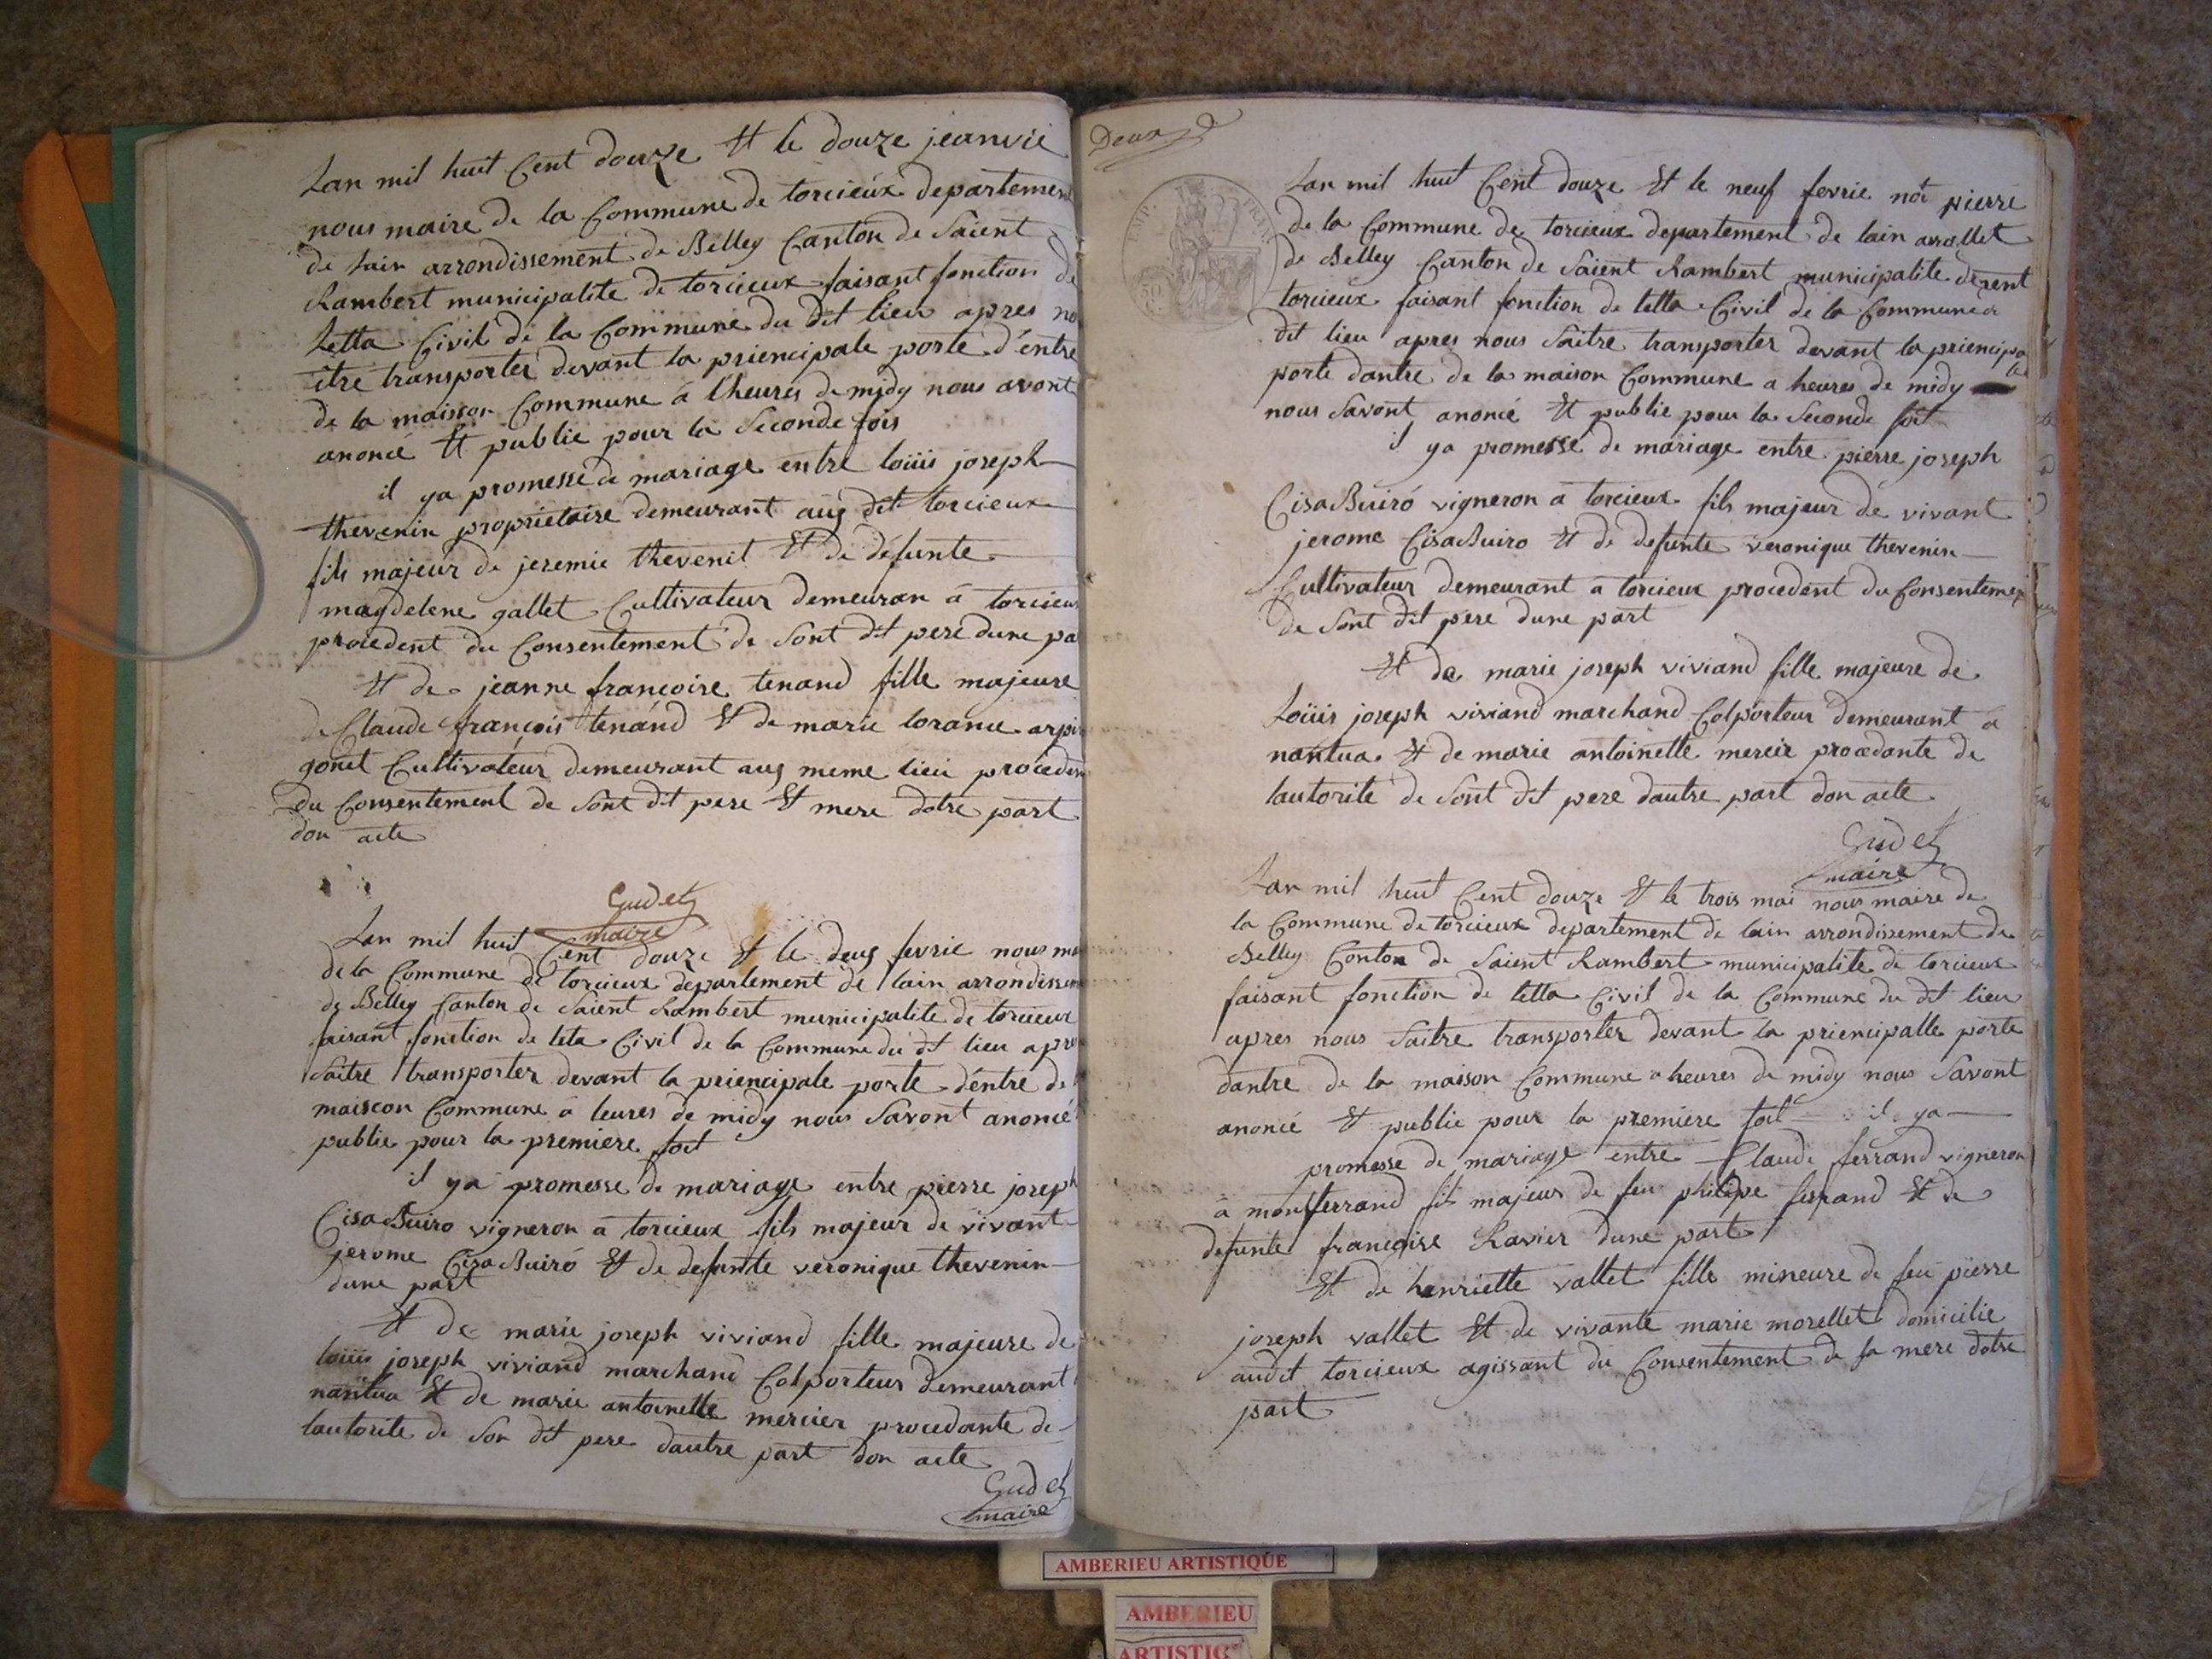 Lan mil huit Cent douze Et le douze jeanvié
nous maire de la Commune de torcieux departement
de lain arrondissement de Belley Canton de Saient
Rambert municipalite de torcieux faisant fonction de
Letta Civil de la Commune du dit lieu apres no
itre transporter devant la priencipale porte d'entre
de la maison Commune à lheures de midy nous avont
anoncé Et publie pour la Seconde fois
il ya promesse de mariage entre loüis joseph
thevenin proprietaire demeurant aug dit torcieux
fils majeur de jeremie thevenit Et de défunte
magdelene gallet Cultivateur demeuran à torcieux
procedent du Consentement de Sont dit pere dune pa
Et de jeanne francoise tenand fille majeure
de Claude françois tenand Et de marie lorance arpin
gonet Cultivateur demeurant aug meme lieu procedent
du Consentement de Sont dit pere Et mere dotre part
don acte
Gudet
maire
Lan mil huit Cent douze Et le deug fevrie nous ma
de la Commune de torcieux departement de lain arrondissem
de Belley Canton de Saient Rambert municipalite de torcieux
faisant fonction de leta Civil de la Commune du dit lieu apre
Saitre transporter devant la priencipale porte dentre de
maiscon Commune à leures de midy nous Savont anoncé
publie pour la premiere foit
il ya promesse de mariage entre pierre joseph
Cisa Buiro vigneron a torcieux fils majeur de vivant
jerome Cisa Buiró Et de defunte veronique thevenin
dune part
Et de marie joseph viviand fille majeure de
loüis joseph viviand marchand Colporteur demeurant
nantua Et de marie antoinette mercier procedante de
lautorite de Son dit pere dautre part don acte
Gudet
maire
Deux
Lan mil huit Cent douze Et le neuf fevrie noi pierre
de la Commune de torcieux departement de lain
de Belley Canton de Saient Rambert municipalite
torcieux faisant fonction de letta Civil de la Commune d
dit lieu apres nous Saitre transporter devant la priencipa
le
porte dantre de la maison Commune a heures de midy
nous Savont anoncé Et publie pour la Seconde foit
il ya promesse de mariage entre pierre joseph
Cisa Buiró vigneron a torcieux fils majeur de vivant
jerome Cisa Buiro Et de defunte veronique thevenin
Cultivateur demeurant a torcieux procedent du Consenteme
de Sont dit pere dune part
Et de marie joseph viviand fille majeure de
Loüis joseph viviand marchand Colporteur demeurant a
nantua Et de marie antoinette mercie procedante de
lautorite de Sont dit pere dautre part don acte
Gudet
maire
Lan mil huit Cent douze Et le trois mai nous maire de
la Commune de torcieux departement de lain arrondissement de
Belley Conton de Saient Rambert municipalite de torcieux
faisant fonction de letta Civil de la Commune du dit lieu
apres nous Saitre transporter devant la priencipalle porte
dantre de la maison Commune a heures de midy nous Savont
anoncé Et publie pour la premiere foit il ya
promesse de mariage entre Claude ferrand vigneron
à montferrand fils majeur de feu philipe ferrand Et de
defunte francoise Ravier dune part
Et de henriette vallet fille mineure de feu pierre
joseph vallet Et de vivante marie morellet domicilie
audit torcieux agissant du Consentement de sa mere dotre
part
AMBERIEU ARTISTIQUE
AMBERIEU
ARTISTIC